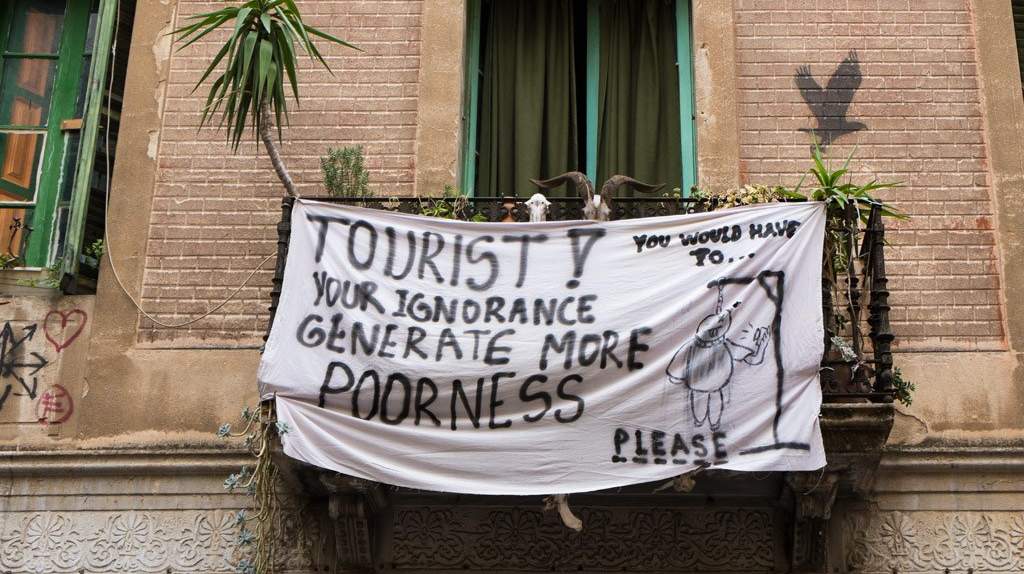 TOURIST!
YOUR IGNORANCE
GENERATE MORE
POORNESS
YOU WOULD HAVE
TO...
PLEASE